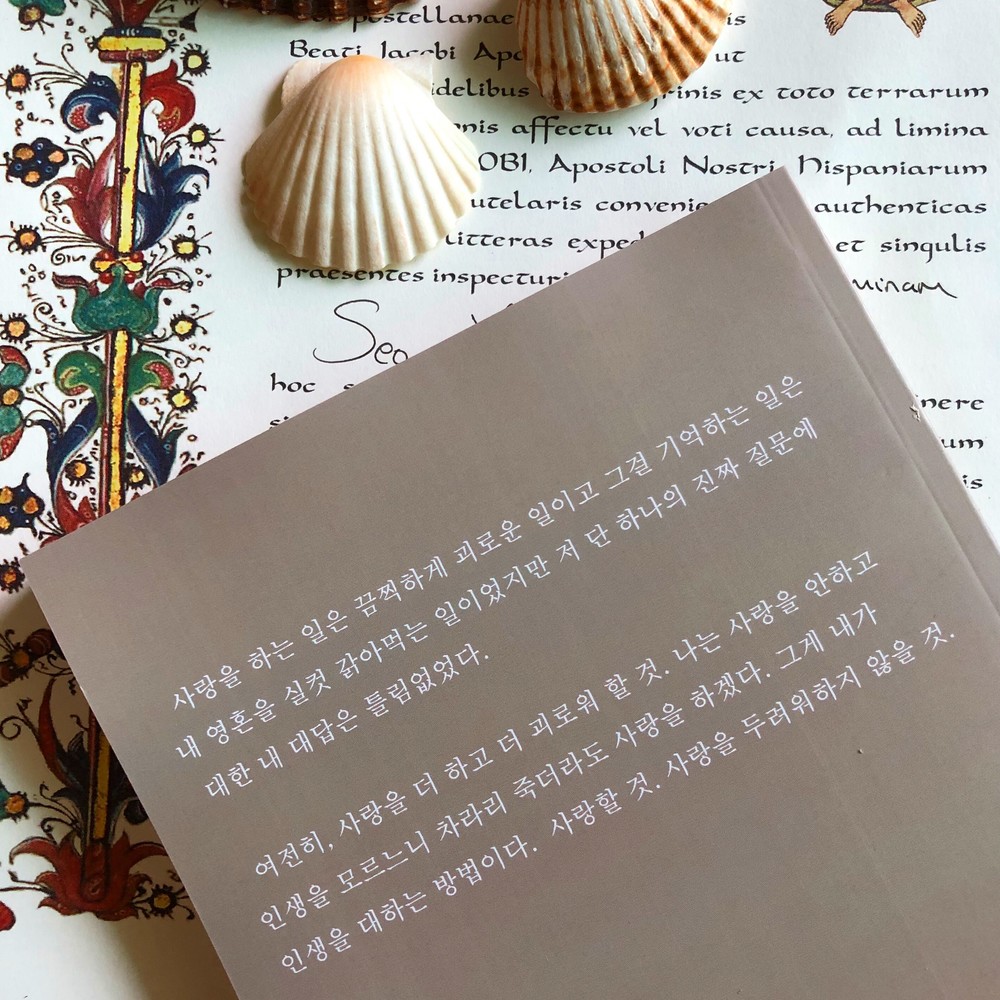 postellanae
Beati Jacobi ut
idelibus ex toto terrarum
affectu vel voti causa, ad limina
OBI, Apostoli Nostri Hispaniarum
utelaris authenticas
litteras et singulis
praesentes
Seo
hoc
um
is
사랑을 하는 일은 끔찍하게 괴로운 일이고 그걸 기억하는 일은
내 영혼을 실컷 갉아먹는 일이었지만 저 단 하나의 진짜 질문에
대한 내 대답은 틀림없었다.
여전히, 사랑을 더 하고 더 괴로워 할 것. 나는 사랑을 안하고
인생을 모르느니 차라리 죽더라도 사랑을 하겠다. 그게 내가
인생을 대하는 방법이다. 사랑할 것. 사랑을 두려워하지 않을 것.